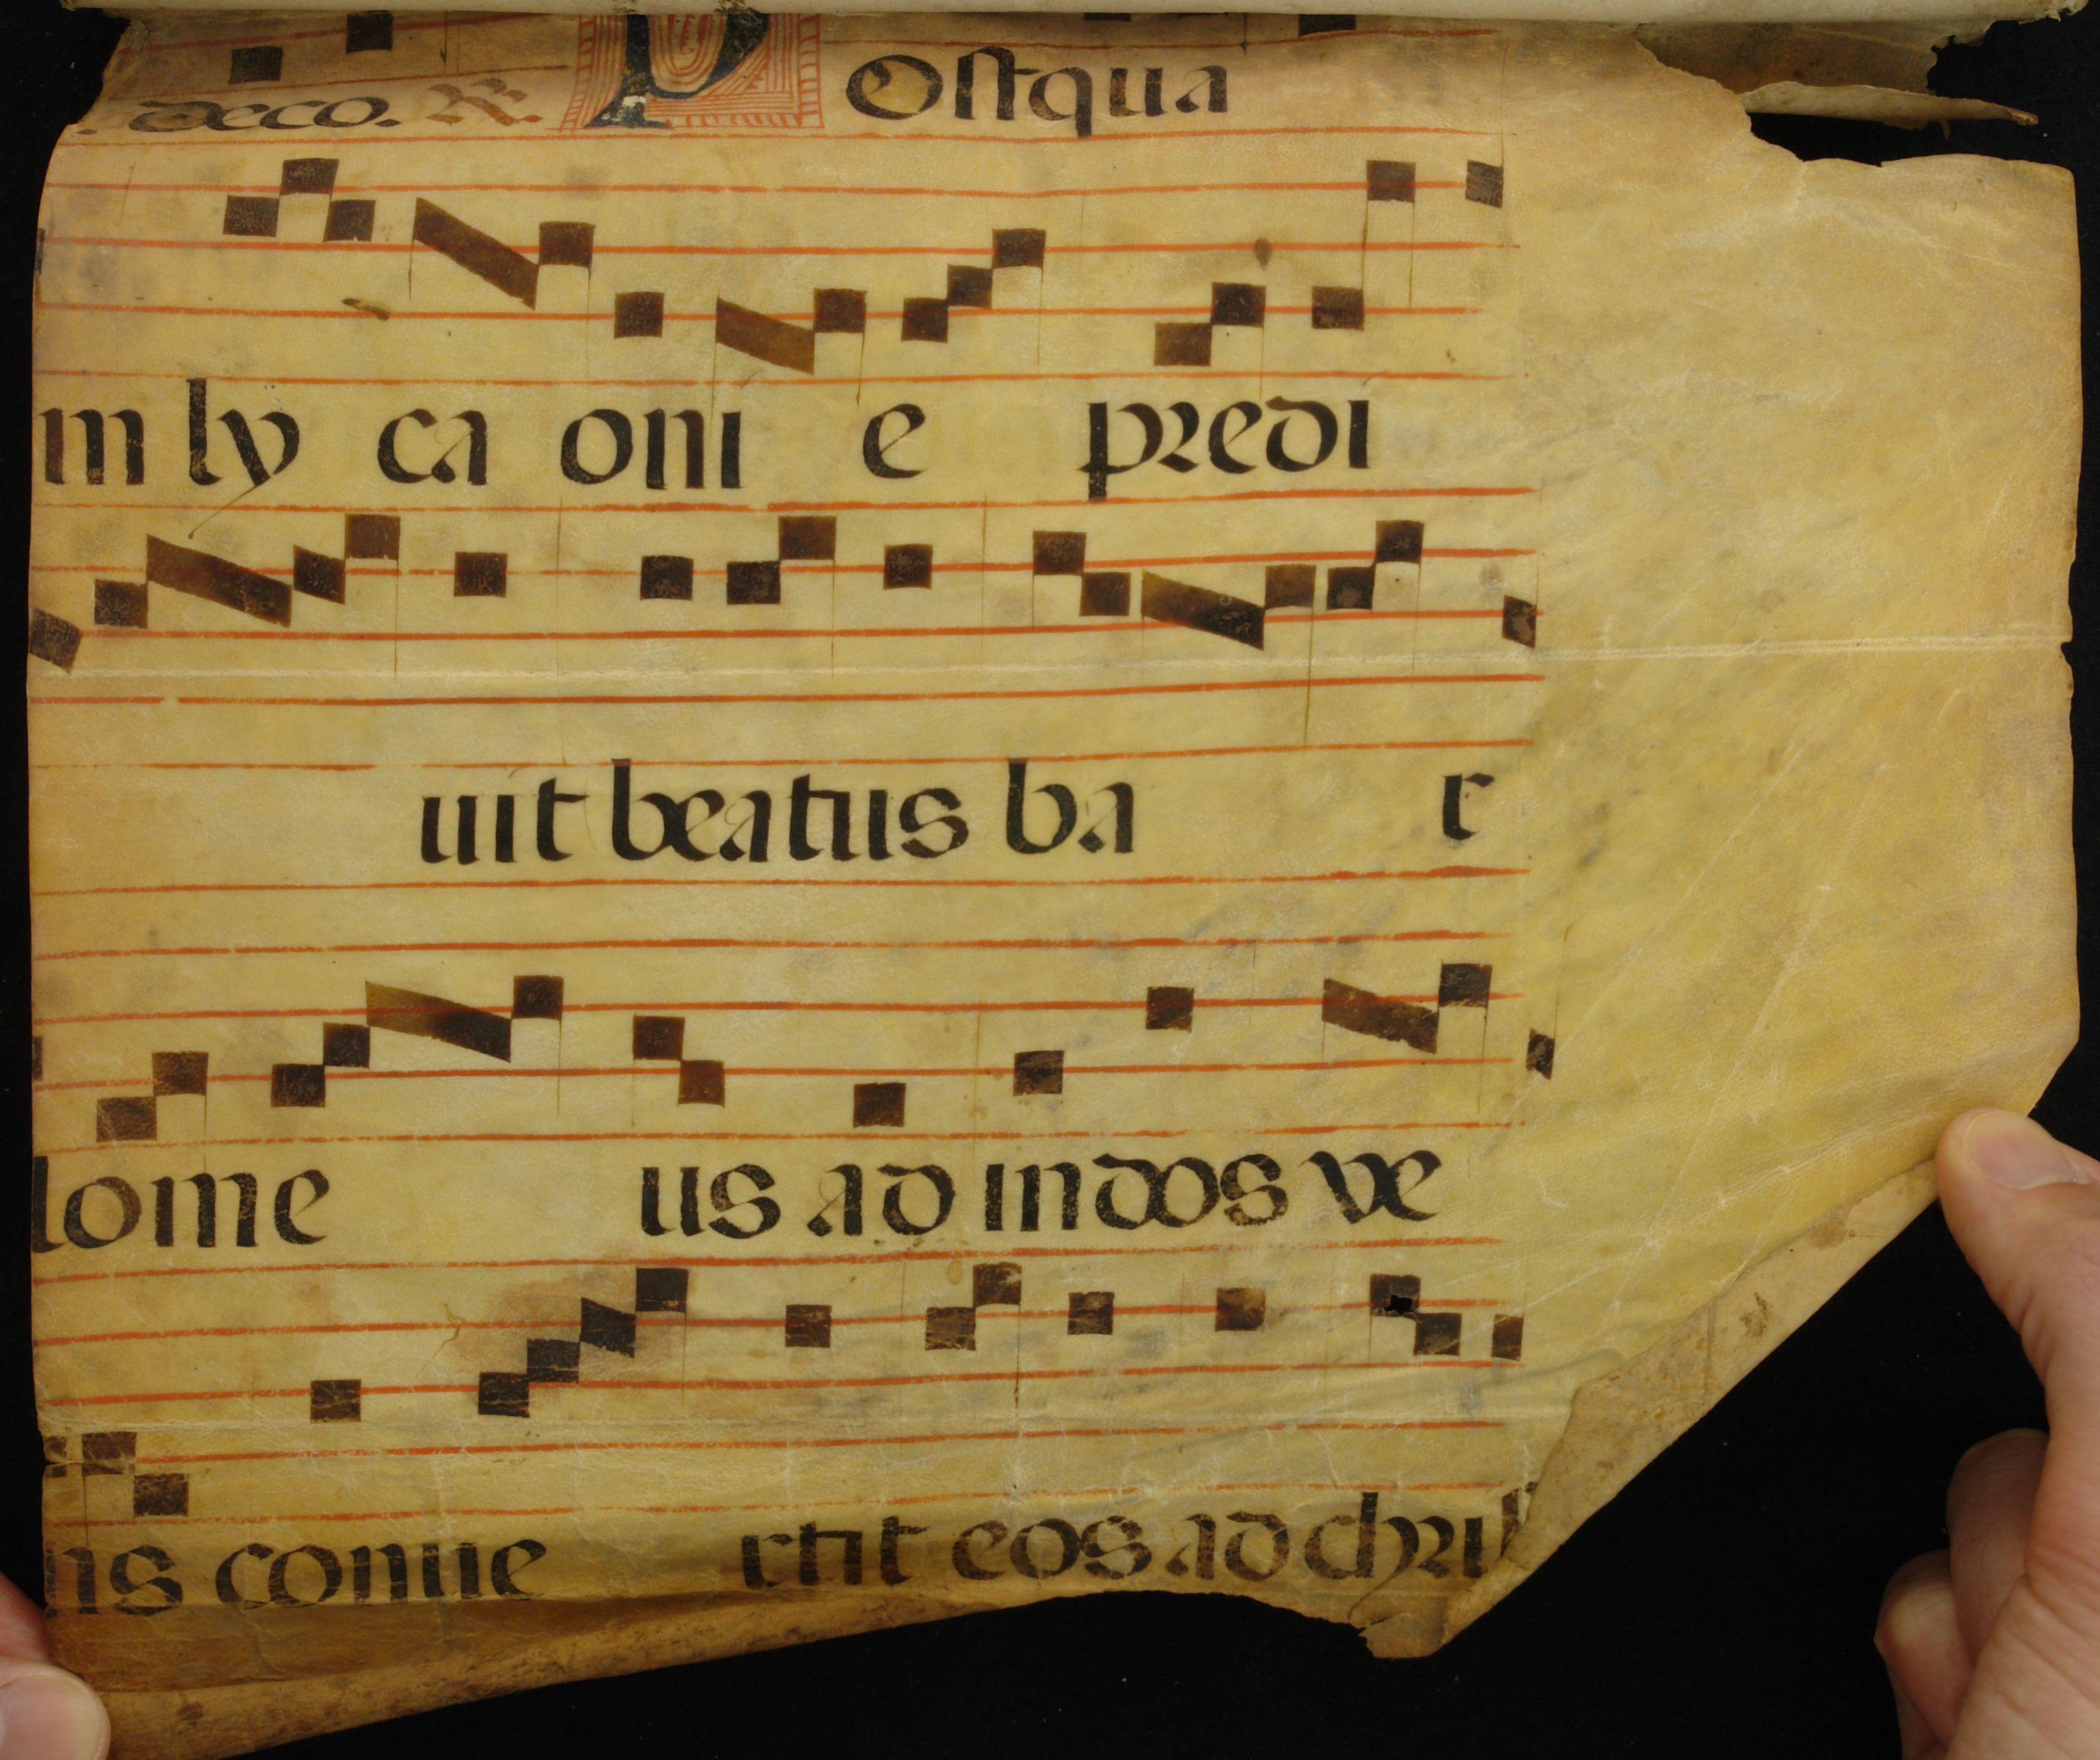 deco. R. POstqua
m ly ca oni e predi
uit beatus ba r
lome us ad indos ve
ns conue rtit eos ad chri